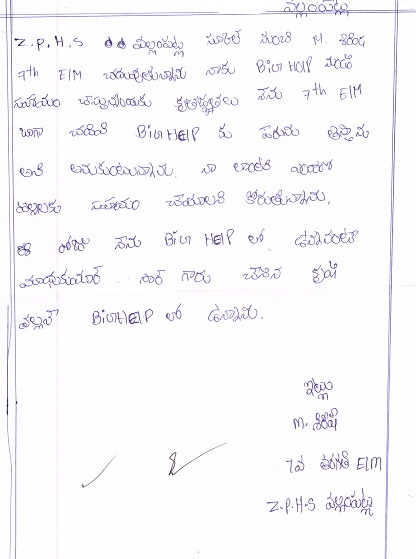 వల్లంపట్ల
Z.P.H.S వల్లంపట్ల స్కూల్ నుంచి M. శిరీష
7th E/M చదువుతున్నాను నాకు BIGHELP నుండి
సహాయం చేస్తున్నందుకు కృతజ్ఞతలు నేను 7th E/M
బాగా చదివి BIGHELP కు పేరును తెస్తాను
అని అనుకుంటున్నాను. నా లాంటి ఎందరో
పిల్లలకు సహాయం చేయాలని కోరుతున్నాను.
ఈ రోజు నేను BIG HELP లో ఉన్నానంటే
సార్ గారు చేసిన కృషి
వల్లనే BIGHELP లో ఉన్నాను.
ఇట్లు
M. శిరీష
7వ తరగతి E/M
Z.P.H.S వల్లంపట్ల